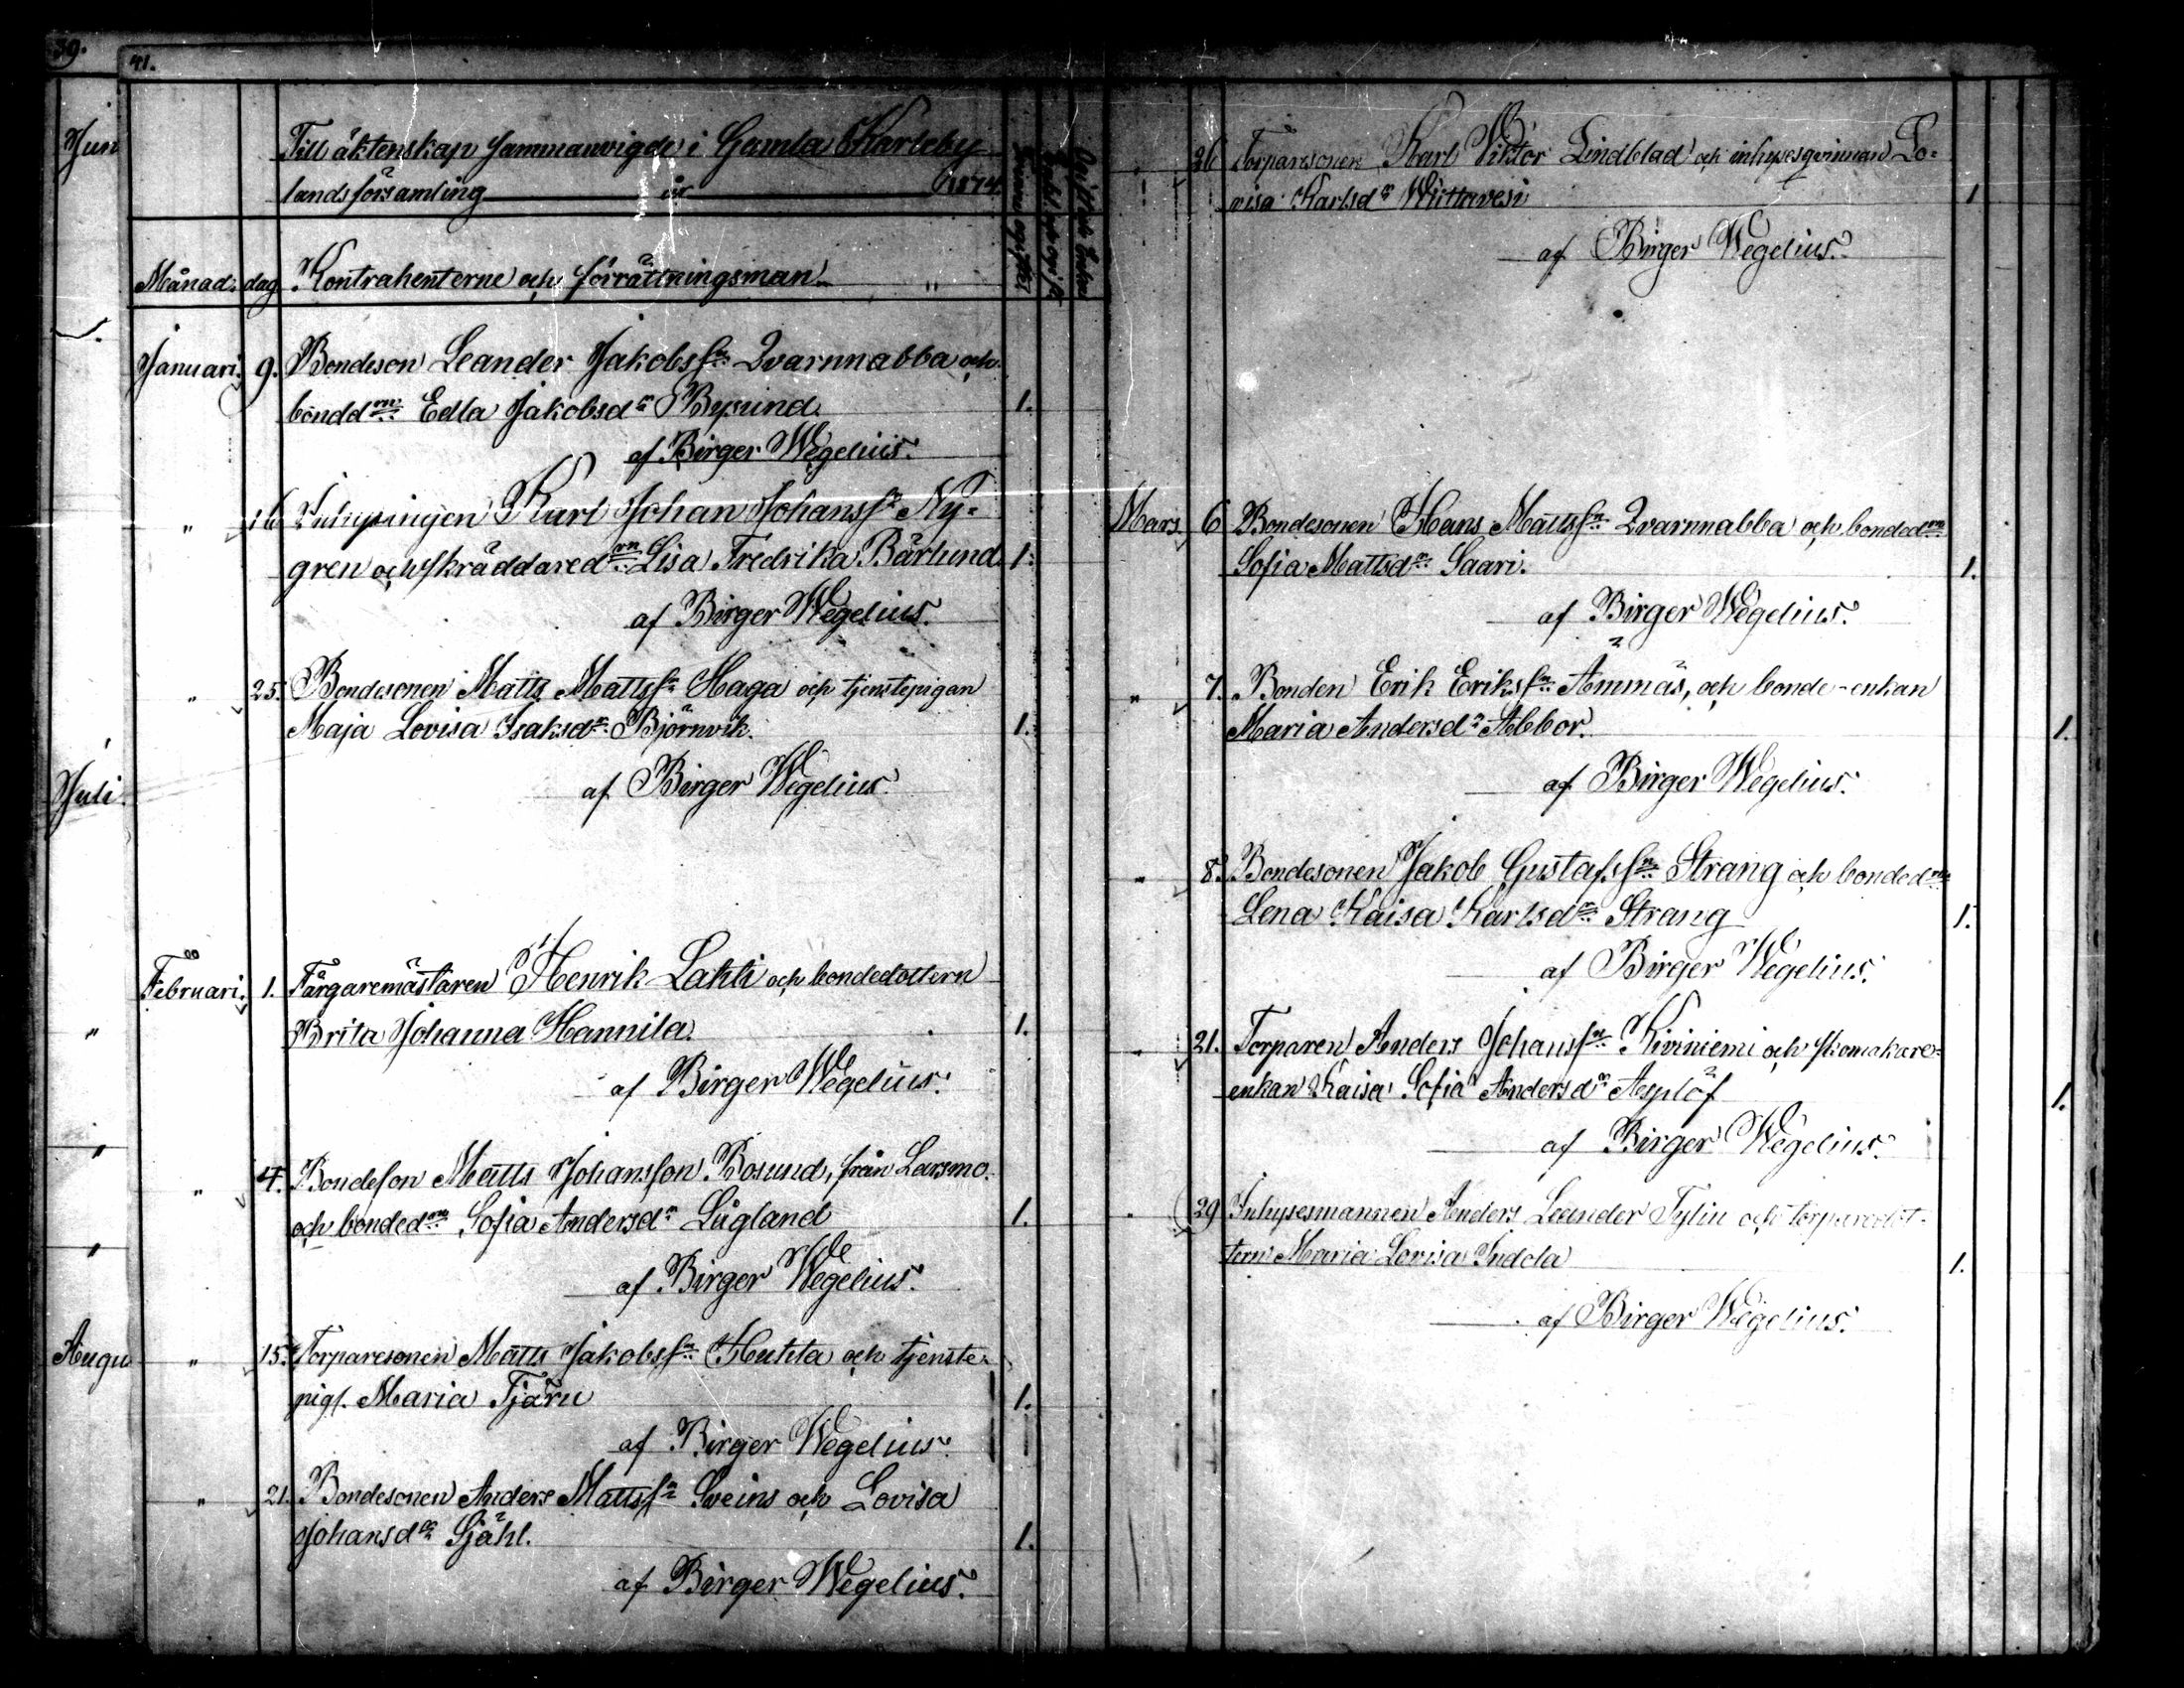 39.
41.
Jun
Juli
Augu
Till äktenskap sammanvigde i Gamla Karleby
landsförsamling år 1874
Månad. dag Kontrahenterne och förrättningsman
Januari. 9. Bondeson Leander Jakobss:n Qvarnnabba och
bondd:rn Edla Jakobsd:r Bysund. 1.
af Birger Wegelius.
" 16 Inhysingen Karl Johan Johanss:n Ny-
gren och skräddared:rn Lisa Fredrika Bärlund 1.
af Birger Wegelius.
" 25. Bondesonen Matts Mattss:n Haga och tjenstepigan
Maja Lovisa Isaksd:r Björnvik. 1.
af Birger Wegelius.
Februari. 1. Färgaremästaren Henrik Lahti och bondedottern
Brita Johanna Hannila. 1.
af Birger Wegelius.
" 4. Bondeson Matts Johansson Bosund, från Larsmo
och bonded:rn Sofia Andersd:r Lågland 1.
af Birger Wegelius.
" 15. Torparesonen Matts Jakobss:n Huhta och tjenste-
pig. Maria Tjäru 1.
af Birger Wegelius.
" 21. Bondesonen Anders Mattss:n Sveins och Lovisa
Johansd:r Sjähl. 1.
af Birger Wegelius.
" 26 Torparesonen Karl Viktor Lindblad och inhysesqvinnan Lo-
visa Karlsd:r Wiittavesi 1
af Birger Wegelius.
Mars 6 Bondesonen Hans Mattss:n Qvarnnabba och bonded:rn
Sofia Mattsd:r Saari. 1.
af Birger Wegelius.
" 7. Bonden Erik Erikss:n Ämmäs, och bonde-enkan
Maria Andersd:r Abbor. 1.
af Birger Wegelius.
" 8. Bondesonen Jakob Gustafss:n Strang och bonded:rn
Lena Kaisa Karlsd:r Strang 1.
af Birger Wegelius.
" 21. Torparen Anders Johanss:n Kiviniemi och skomakare-
enkan Kaisa Sofia Andersd:r Asplöf 1.
af Birger Wegelius.
" 29 Inhysesmannen Anders Leander Tylin och torparedot-
tern Maria Lovisa Indola 1.
af Birger Wegelius.